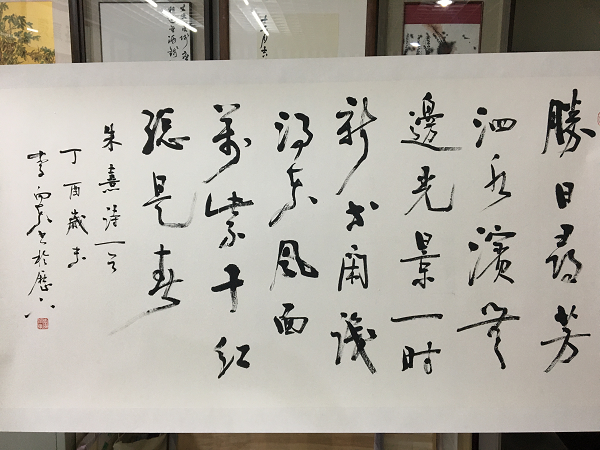 勝日尋芳
泗水濱無
邊光景一时
新等閑識
得东風面
萬紫千红
總是春
朱熹诗一首
丁酉歲末
李向东书於歷下